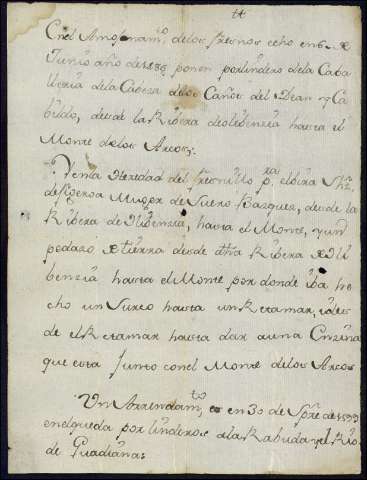 tt
Enel Amojonam.to delos fresnos echo en 6 de
Junio año de 1535 ponen por linderos dela Caba
lleria dela Cabeza delos Caños del Dean y Ca
bildo, desde la Ribera de olibencia hasta el
Monte delos Arcos:
Venta Heredad del fresnillo p.ra elbira
de figeroa Muger de Suero Bazquez, desde la
Ribera de Olibenzia, hasta el Monte, y un
pedazo de tierra desde dha Ribera de Oli
benzia hasta el Monte por donde iba he
cho un Surco hasta un Retamar, y des
de el Retamar hasta dar a una Enzina
que esta Junto con el Monte delos Arcos
Un Arrendam.to en 30 de Sp.re de
en el queda por linderos ala Rabuda y el Rio
de Guadiana: